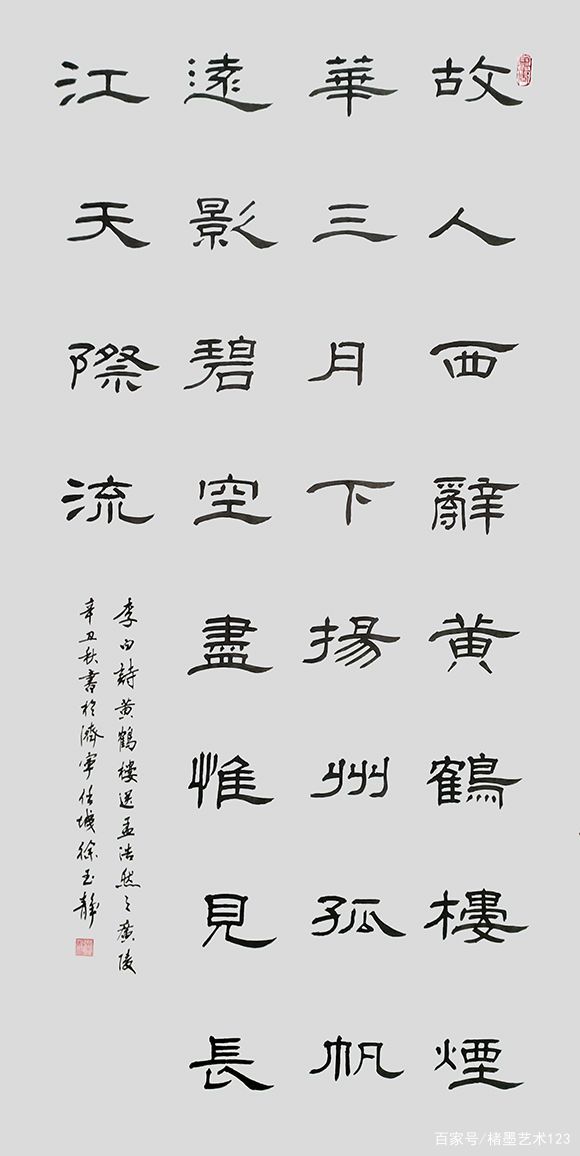 故人西辭黄鶴樓煙
華三月下揚州孤帆
遠影碧空盡惟見長
江天際流
李白詩黄鶴樓送孟浩然之廣陵
辛丑秋書於濟寧任城徐玉靜
百家号/楮墨艺术123